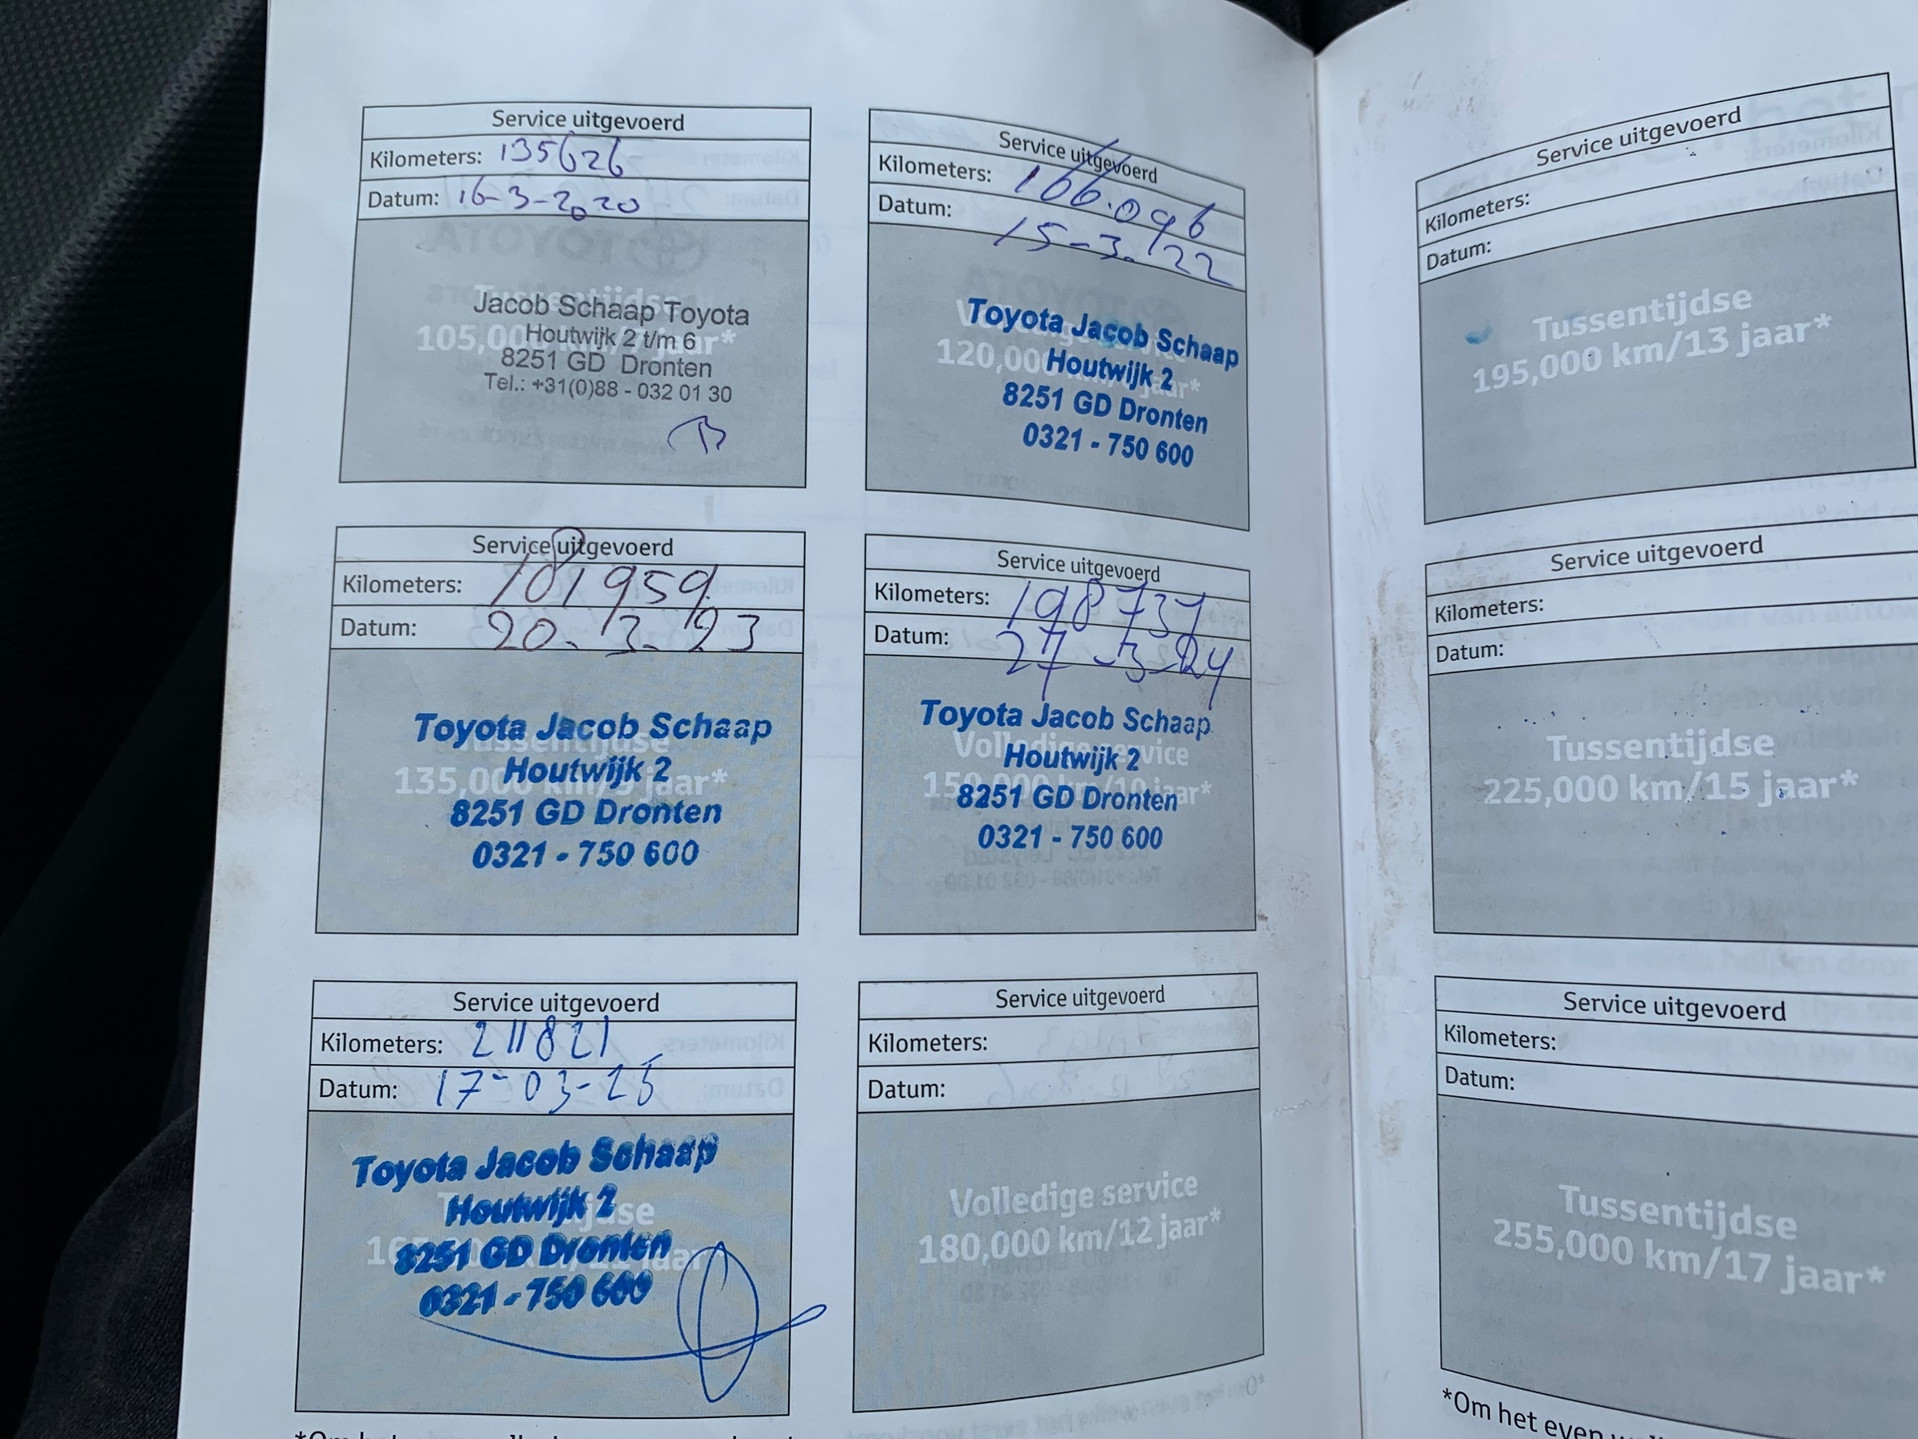 Service uitgevoerd
Kilometers: 135626
Datum: 16-3-2020
Jacob Schaap Toyota
105,000 km/7 jaar*
Houtwijk 2 t/m 6
8251 GD Dronten
Tel.: +31(0)88 - 032 01 30
Service uitgevoerd
Kilometers: 166.096
Datum: 15-3-'22
Toyota Jacob Schaap
120,000
jaar*
Houtwijk 2
8251 GD Dronten
0321 - 750 600
Service uitgevoerd
Kilometers: 181959
Datum: 20-3-23
Toyota Jacob Schaap
Tussentijdse
Houtwijk 2
135,000 km/9 jaar*
8251 GD Dronten
0321 - 750 600
Service uitgevoerd
Kilometers: 198737
Datum: 27-3-24
Toyota Jacob Schaap
Volledige service
Houtwijk 2
150,000 km/10 jaar*
8251 GD Dronten
0321 - 750 600
Service uitgevoerd
Kilometers: 211821
Datum: 17-03-25
Toyota Jacob Schaap
Houtwijk 2
8251 GD Dronten
jaar*
0321 - 750 600
Service uitgevoerd
Kilometers:
Datum:
Volledige service
180,000 km/12 jaar*
Service uitgevoerd
Kilometers:
Datum:
Tussentijdse
195,000 km/13 jaar*
Service uitgevoerd
Kilometers:
Datum:
Tussentijdse
225,000 km/15 jaar*
Service uitgevoerd
Kilometers:
Datum:
Tussentijdse
255,000 km/17 jaar*
*Om het even